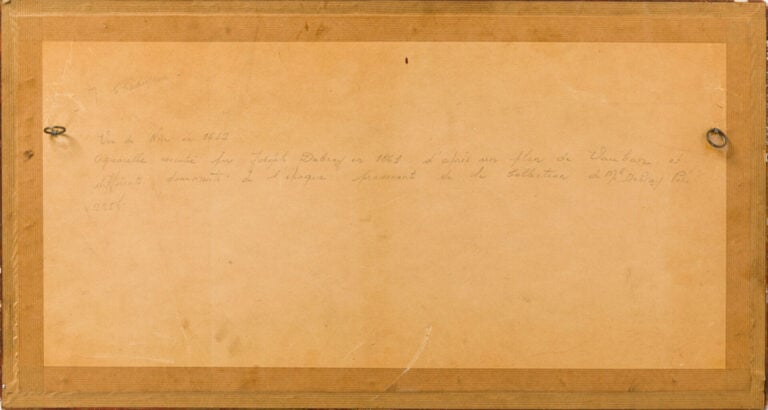 Vue de Nice en 1642
Aquarelle exécuté par Joseph Dabray en 1861 d'après un plan de Vauban et
différents documents de l'époque provenant de la Collection de Mr Dabray Père